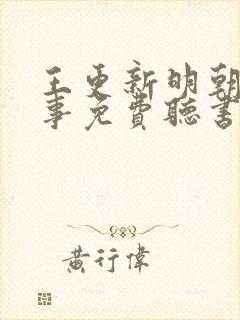 王更新明朝
事免費聽書
黃行偉